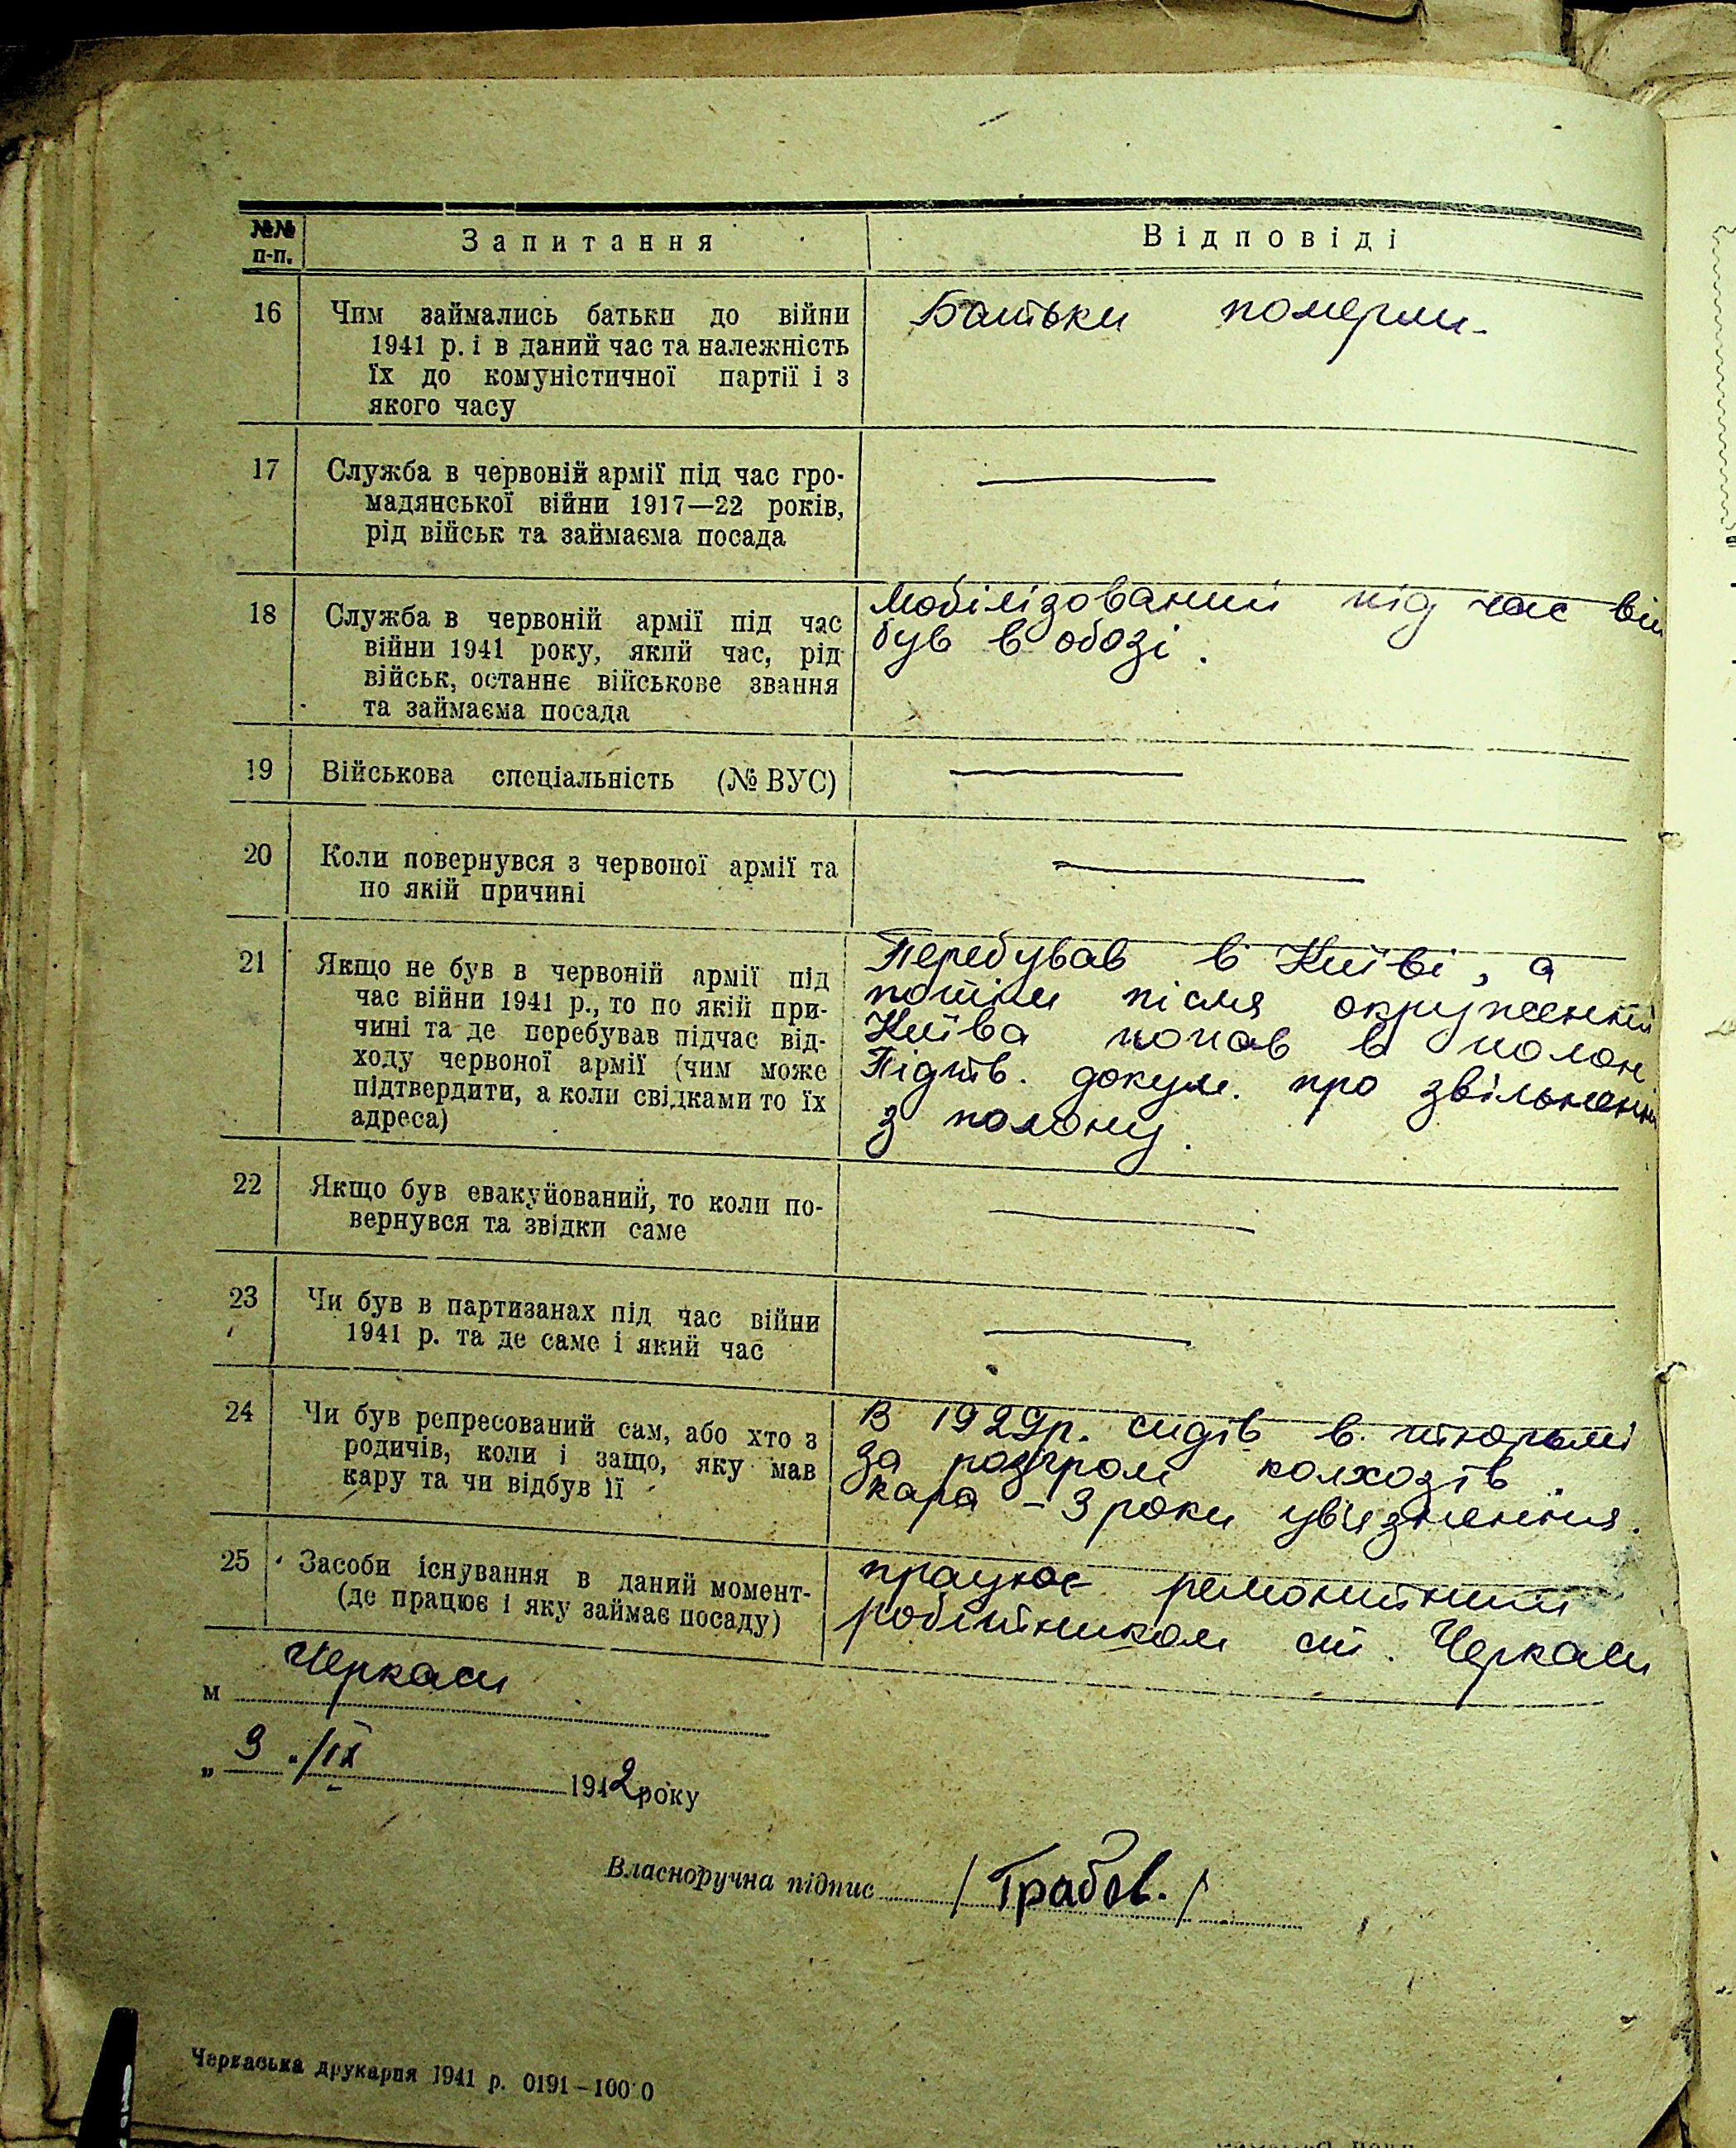 №№ п-п.
Запитання
Відповіді
16
Чим займались батьки до війни
1941 р. і в даний час та належність
їх до комуністичної партії і з
якого часу
Батьки померли.
17
Служба в червоній армії під час гро-
мадянської війни 1917—22 років,
рід військ та займаєма посада
18
Служба в червоній армії під час
війни 1941 року, який час, рід
військ, останнє військове звання
та займаєма посада
Мобілізований під час вій
був в обозі.
19
Військова спеціальність (№ ВУС)
20
Коли повернувся з червоної армії та
по якій причині
21
Якщо не був в червоній армії під
час війни 1941 р., то по якій при-
чині та де перебував підчас від-
ходу червоної армії (чим може
підтвердити, а коли свідками то їх
адреса)
Перебував в Київі, а
потім після окруження
Київа попав в полон
Підтв. докум. про звільнення
з полону.
22
Якщо був евакуйований, то коли по-
вернувся та звідки саме
23
Чи був в партизанах під час війни
1941 р. та де саме і який час
24
Чи був репресований сам, або хто з
родичів, коли і защо, яку мав
кару та чи відбув її
В 1929р. сидів в тюрьмі
за розгром колхозів
кара - 3 роки увязнення.
25
Засоби існування в даний момент-
(де працює і яку займає посаду)
працює ремонтним
робітником ст. Черкаси
м Черкаси
„ 3 „ /IX 1942 року
Власноручна підпис /Грабов./
Черкаська друкарня 1941 р. 0191—100 0